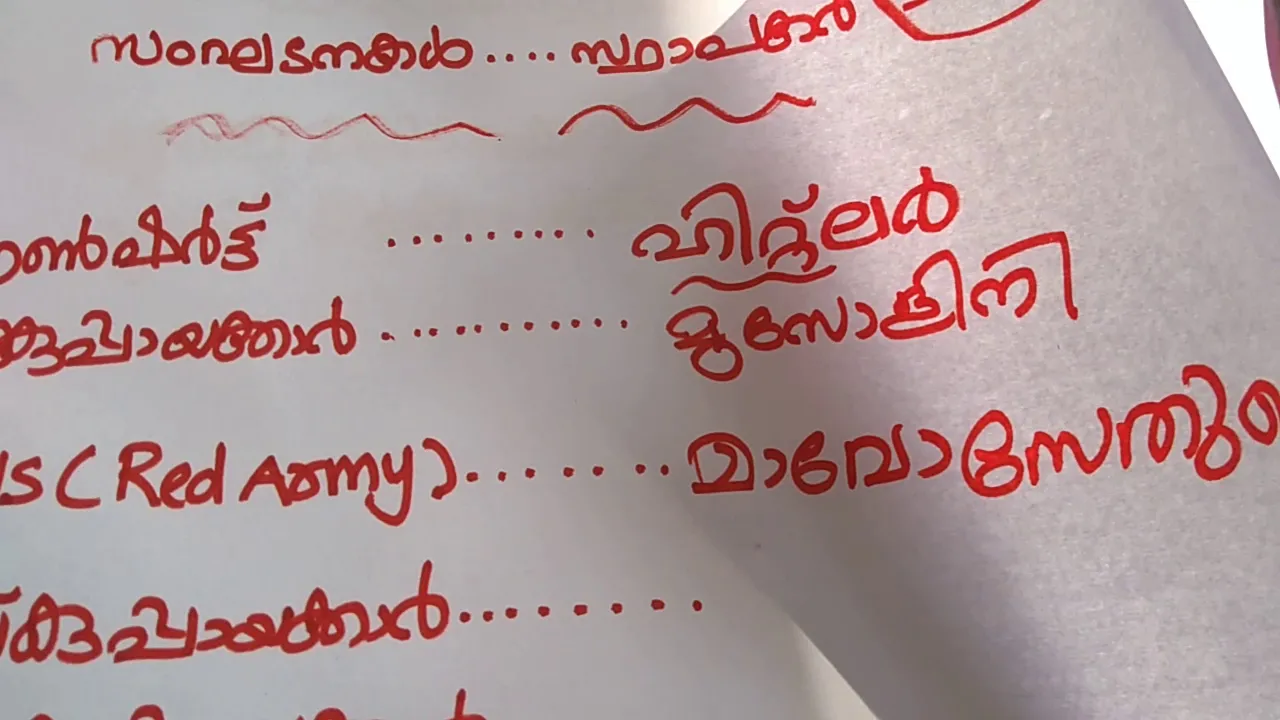 സംഘടനകൾ .... സ്ഥാപകർ
ൗൺഷർട്ട് ......... ഹിറ്റ്ലർ
കുപ്പായക്കാർ ........... മുസോളിനി
(Red Army) ........ മാവോസേതു
കുപ്പായക്കാർ ........